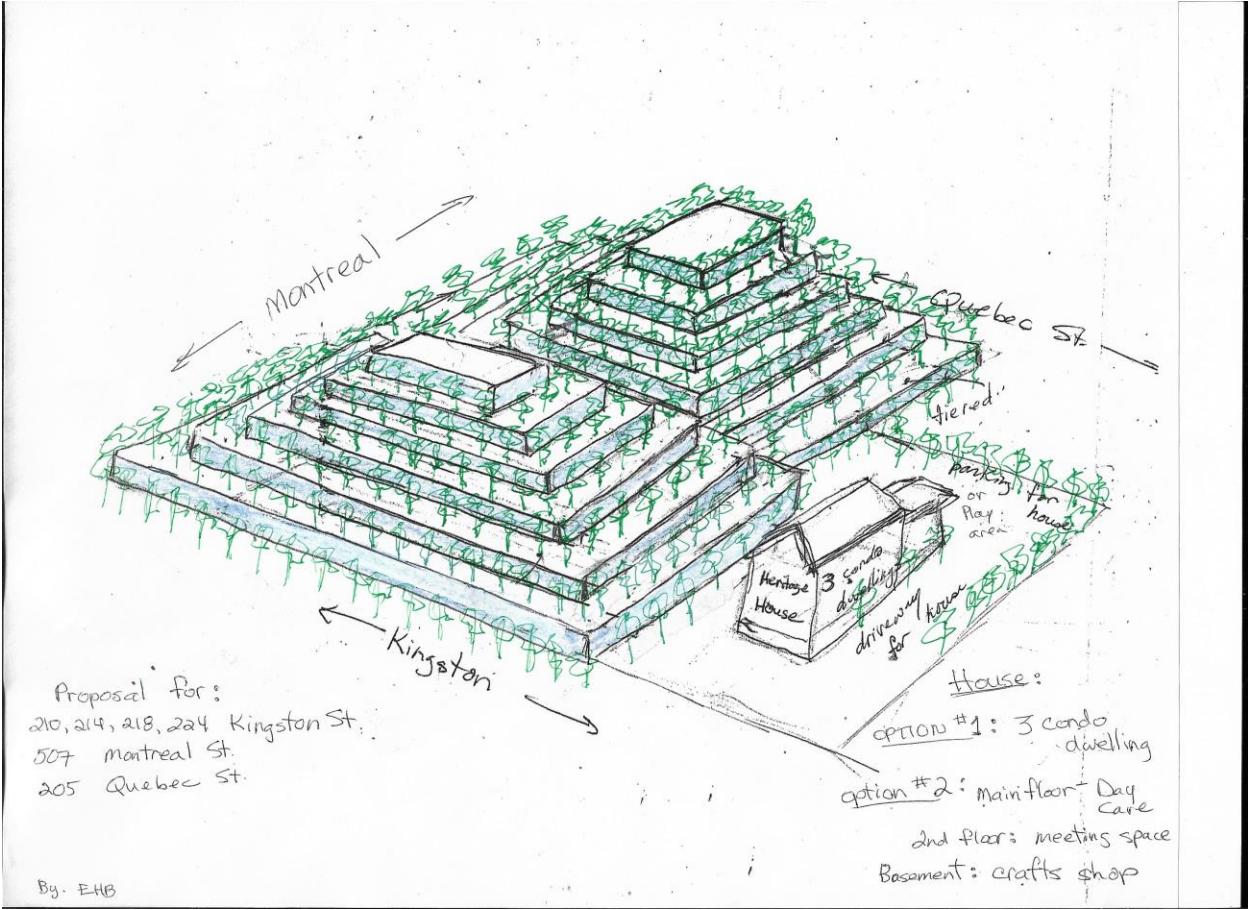 Montreal
Quebec St.
tiered
Parking for
or
Play
area
house
Heritage
House
3 condo
dwelling
driveway
for house
Kingston
Proposal for:
210, 214, 218, 224 Kingston St.
507 Montreal St.
205 Quebec St.
By. EHB
House:
OPTION #1: 3 condo
dwelling
option #2: Main floor - Day
Care
2nd floor: meeting space
Basement: crafts shop